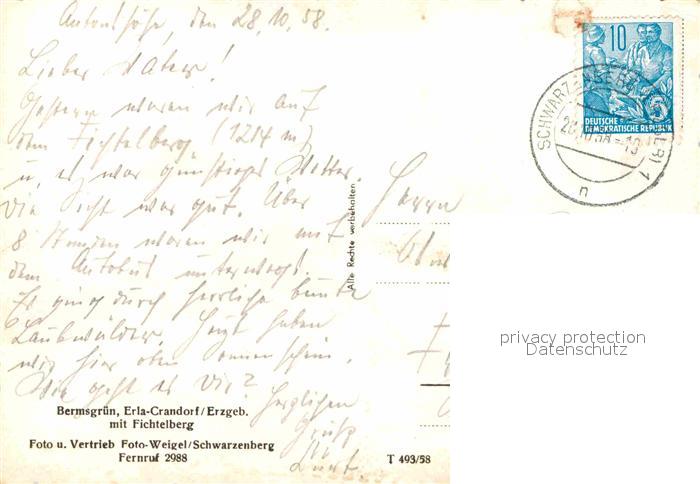 Antonshöhe, den 28.10.58.
Lieber Vater!
Gestern waren wir auf
dem Fichtelberg (1214 m)
u. es war günstiges Wetter.
Die Sicht war gut. Über
8 Stunden waren wir mit
dem Autobus unterwegs.
Es ging durch herrliche bunte
Laubwälder. Jetzt haben
wir hier oben Sonnenschein.
Wie geht es Dir?
Herzlichen
Gruß
Kurt.
Bermsgrün, Erla-Crandorf/Erzgeb.
mit Fichtelberg
Foto u. Vertrieb Foto-Weigel/Schwarzenberg
Fernruf 2988
Alle Rechte vorbehalten
T 493/58
Herrn
10
DEUTSCHE
DEMOKRATISCHE REPUBLIK
5
SCHWARZENBERG
1
n
privacy protection
Datenschutz